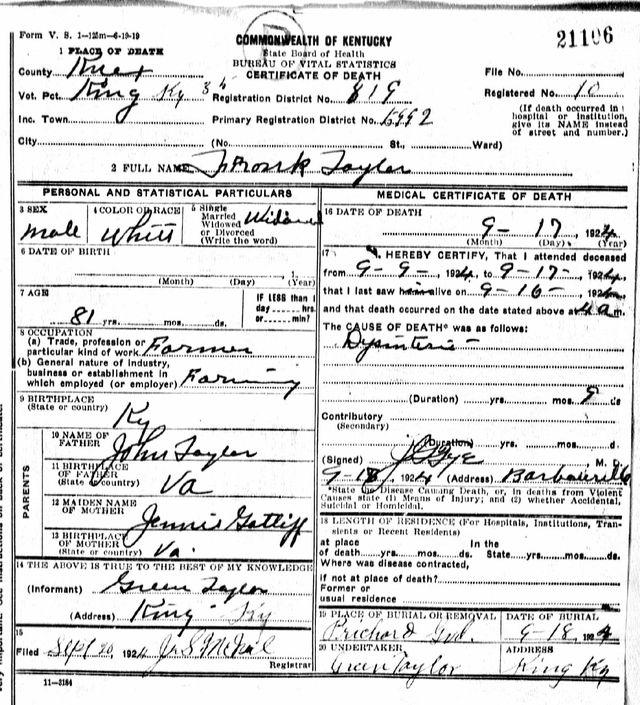 Form V. S. 1—125m—6-19-19
COMMONWEALTH OF KENTUCKY
State Board of Health
BUREAU OF VITAL STATISTICS
CERTIFICATE OF DEATH
21106
1 PLACE OF DEATH
County Knox
File No.
Vot. Pct. King Ky 34
Registration District No. 819
Registered No. 10
Inc. Town
Primary Registration District No. 6992
(If death occurred in a hospital or institution, give its NAME instead of street and number.)
City (No. St., Ward)
2 FULL NAME Frank Taylor
PERSONAL AND STATISTICAL PARTICULARS
3 SEX
male
4 COLOR OR RACE
White
5 Single
Married
Widowed
or Divorced
(Write the word)
Widowed
6 DATE OF BIRTH
(Month) (Day) (Year)
7 AGE
81 yrs. mos. ds.
IF LESS than 1
day hrs.
or min?
8 OCCUPATION
(a) Trade, profession or
particular kind of work Farmer
(b) General nature of industry,
business or establishment in
which employed (or employer) Farming
9 BIRTHPLACE
(State or country)
Ky
PARENTS
10 NAME OF
FATHER
John Taylor
11 BIRTHPLACE
OF FATHER
(State or country)
Va
12 MAIDEN NAME
OF MOTHER
Jennie Gatliff
13 BIRTHPLACE
OF MOTHER
(State or country)
Va.
14 THE ABOVE IS TRUE TO THE BEST OF MY KNOWLEDGE
(Informant) Green Taylor
(Address) King Ky
15
Filed Sept 20, 1924
Registrar
11—3184
MEDICAL CERTIFICATE OF DEATH
16 DATE OF DEATH
9 - 17, 1924
(Month) (Day) (Year)
17 I HEREBY CERTIFY, That I attended deceased
from 9-9-, 1924, to 9-17-, 1924,
that I last saw him alive on 9-16-, 1924,
and that death occurred on the date stated above at 4 am.
The CAUSE OF DEATH* was as follows:
Dysinterie -
(Duration) yrs. mos. 9 ds
Contributory
(Secondary)
(Duration) yrs. mos. d.
(Signed) M. D.
9-18, 1924 (Address) Barbourville
*State the Disease Causing Death, or, in deaths from Violent
Causes state (1) Means of Injury; and (2) whether Accidental,
Suicidal or Homicidal.
18 LENGTH OF RESIDENCE (For Hospitals, Institutions, Tran-
sients or Recent Residents)
at place In the
of death yrs. mos. ds. State yrs. mos. ds.
Where was disease contracted,
if not at place of death?
Former or
usual residence
19 PLACE OF BURIAL OR REMOVAL
Prichard
DATE OF BURIAL
9-18, 1924
20 UNDERTAKER
Green Taylor
ADDRESS
King Ky